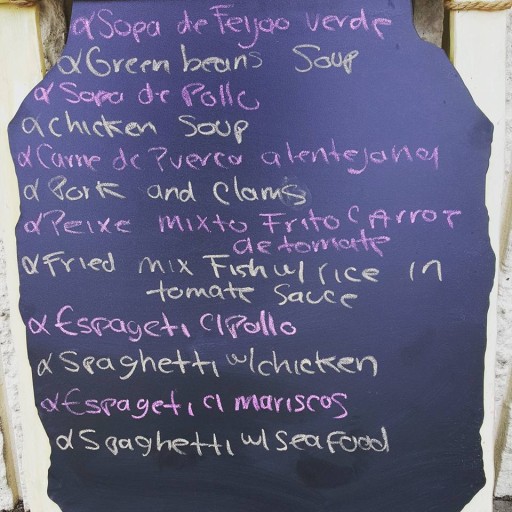 Sopa de Feijao verde
Green beans Soup
Sopa de Pollo
chicken Soup
Carne de Puerco alentejana
Pork and Clams
Peixe mixto Frito C Arroz
de tomate
Fried mix Fish w/ rice in
tomato Sauce
Espageti c/Pollo
Spaghetti w/chicken
Espageti c/ mariscos
Spaghetti w/ seafood